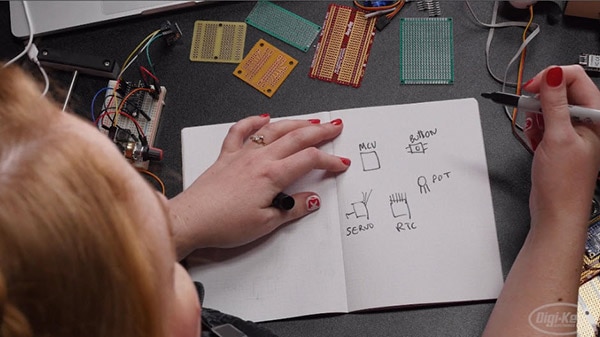 MCU
BUTTON
POT
SERVO
RTC
Digi-Key